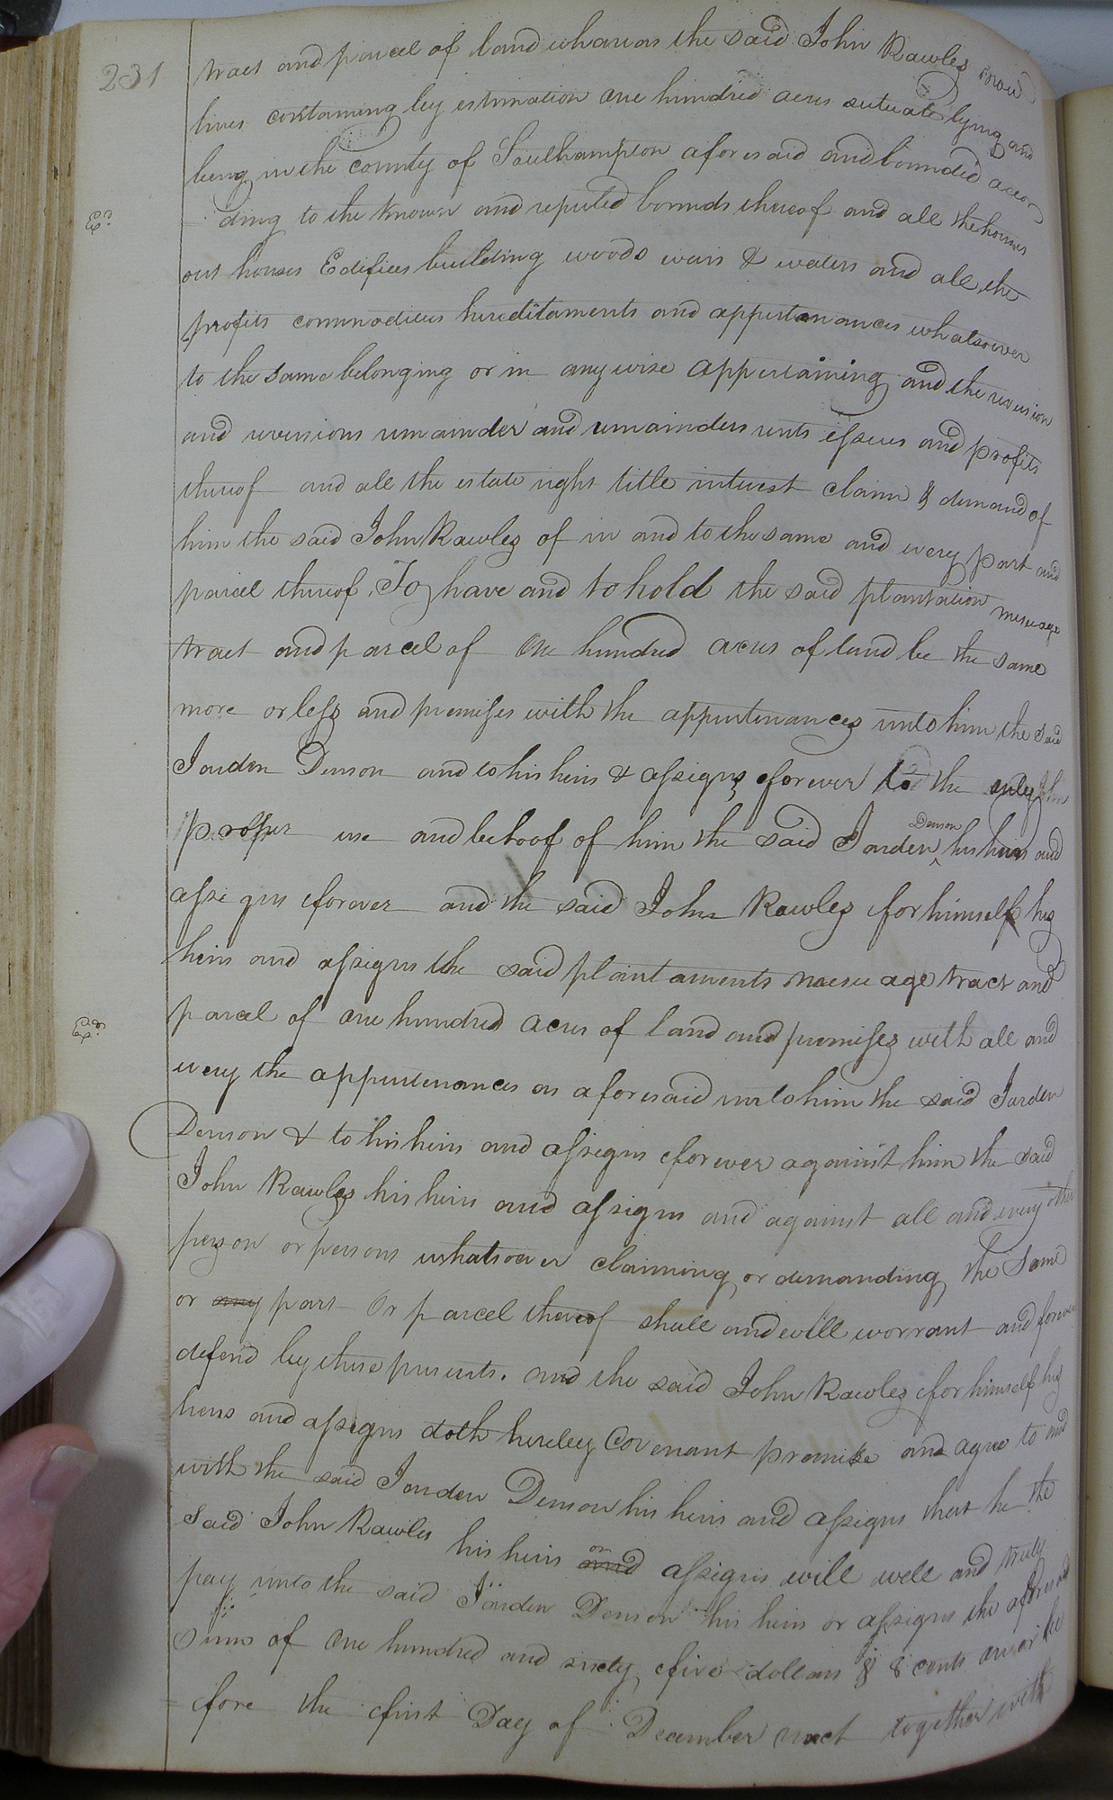 231
tract and parcel of land wharon the said John Rawles now
lives containing by estimation one hundred acres sutuate lying and
being in the county of Southampton aforesaid and bounded accor
= ding to the known and reputed bounds thereof and all the houses
out houses Edifices building woods wais & waters and all the
profits commodities hereditaments and appurtenances whatsoever
to the same belonging or in any wise appertaining and the revesion
and revesions remainder and remainders rents issues and profits
thereof and all the estate right title interest claim & demand of
him the said John Rawles of in and to the same and every part and
parcel thereof. To have and to hold the said plantation messuage
tract and parcel of One hundred acres of land be the same
more or less and premises with the appurtenances unto him the said
Jorden Denson and to his heirs & assigns forever to the only
proper use and behoof of him the said Jorden Denson his heirs and
assigns forever and the said John Rawles for himself his
heirs and assigns the said plaintaments messuage tract and
parcel of one hundred acres of land and premises with all and
every the appurtenances as aforesaid unto him the said Jorden
Denson & to his heirs and assigns forever against him the said
John Rawles his heirs and assigns and against all and every other
person or persons whatsoever claiming or demanding the same
or any part Or parcel thereof shall and will warrant and forever
defend by these presents. and the said John Rawles for himself his
heirs and assigns doth hereby covenant promise and agree to and
with the said Jorden Denson his heirs and assigns that he the
said John Rawles his heirs and or assigns will well and truly
pay unto the said Jorden Denson his heirs or assigns the aforesaid
sum of One hundred and sixty five dollars & 8 cents on or be
= fore the first Day of December next together with